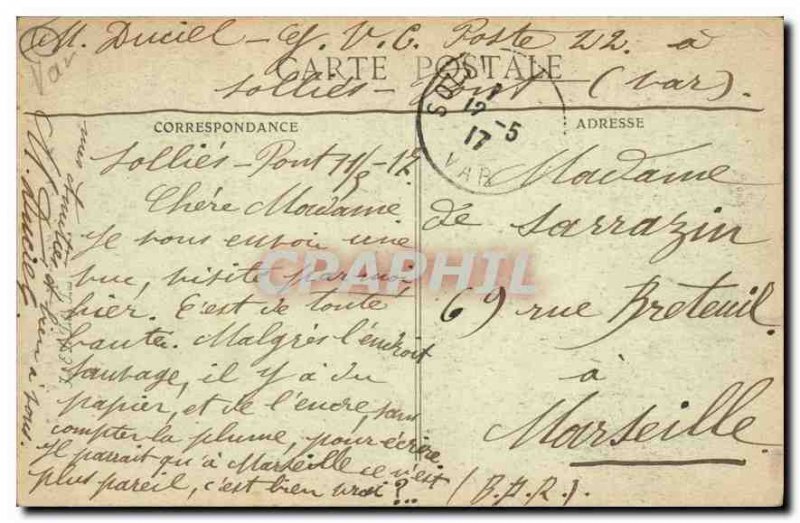 M. Duciel - G. V. C. Poste 22. à
CARTE POSTALE
Solliès-Pont - (Var).
Var
CORRESPONDANCE
ADRESSE
Solliès-Pont 11/5-17.
Chère Madame
Je vous envoi une
vue, visité par moi
hier. C'est de toute
beauté. Malgrès l'endroit
Sauvage, il y à du
papier, et de l'encre, sans
compter la plume, pour écrire.
Il parrait qu'à Marseille ce n'est
plus pareil, c'est bien vrai?...
mes amitiés et bien à vous.
M. Duciel
SOLLIÈS
12 -5
17
VAR
Madame
de Sarrazin
69 rue Breteuil.
à
Marseille.
(B.d.R.).
CPAPHIL